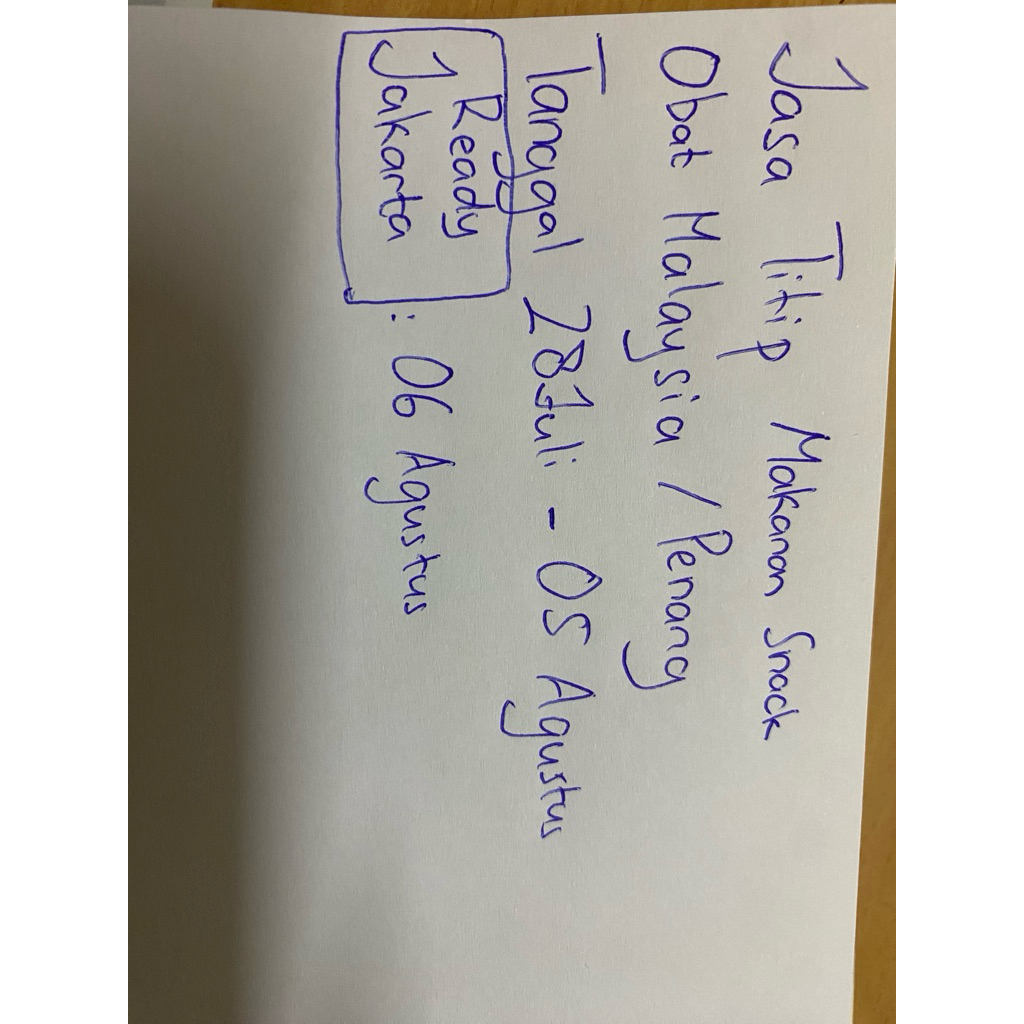 Jasa Titip Makanan Snack
Obat Malaysia / Penang
Tanggal 28 Juli - 05 Agustus
Ready
Jakarta : 06 Agustus